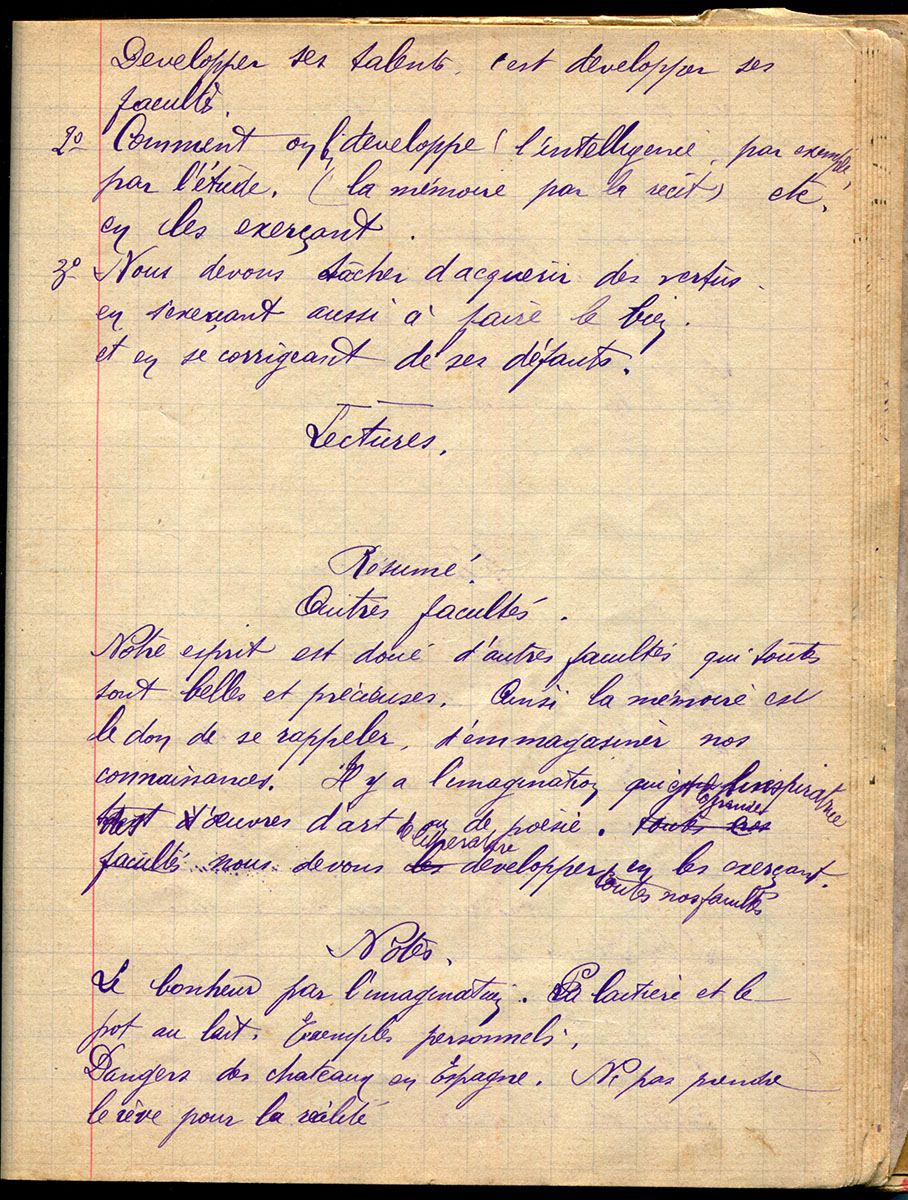 Developper ses talents, c'est developper ses
facultés.
2º Comment on l' developpe (l'intelligence, par exemple,
par l'étude. (la mémoire par la récit) etc.
en les exerçant.
3º Nous devons tâcher d'acquérir des vertus
en s'exerçant aussi à faire le bien.
et en se corrigeant de ses défauts.
Lectures.
Résumé.
Autres facultés.
Notre esprit est doué d'autres facultés qui toutes
sont belles et précieuses. Ainsi la mémoire est
le don de se rappeler, d'emmagasiner nos
connaissances. Il y a l'imagination qui est l'inspiratrice
de grandes
d'œuvres d'art ou de poésie. toutes nos
de littérature
facultés nous devons les développer en les exerçant.
toutes nos facultés
Notes.
Le bonheur par l'imagination. La laitière et le
pot au lait. Exemples personnels.
Dangers des chateaux en Espagne. Ne pas prendre
le rêve pour la réalité